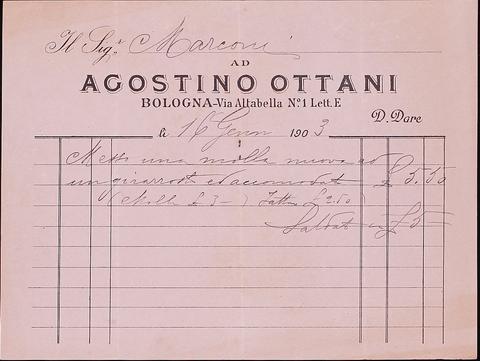 Il Sig.r Marconi
AD
AGOSTINO OTTANI
BOLOGNA-Via Altabella No. 1 Lett. E
D. Dare
li 16 Genn 1903
Messo una molla nuova ad
un girarrosto ed accomodato £ 5.50
(Molla £ 3 - ) Fattu £ 2.50 )
Saldato in £ 5 -